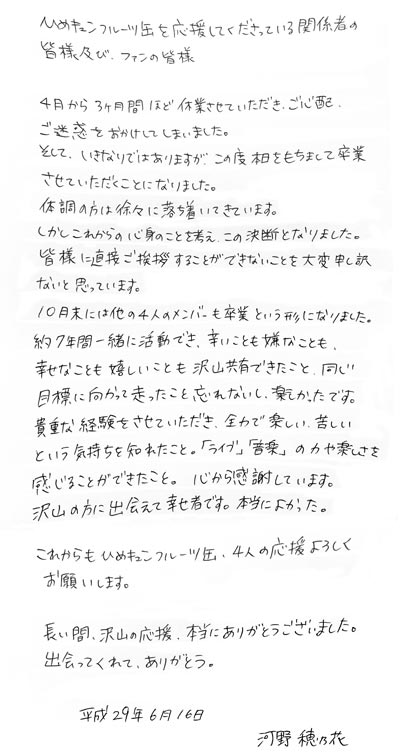 ひめキュンフルーツ缶を応援してくださっている関係者の
皆様及び、ファンの皆様
4月から3ヶ月間ほど休業させていただき、ご心配、
ご迷惑をおかけしてしまいました。
そして、いきなりではありますが、この度本日をもちまして卒業
させていただくことになりました。
体調の方は徐々に落ち着いてきています。
しかしこれからの心身のことを考え、この決断となりました。
皆様に直接ご挨拶することができないことを大変申し訳
ないと思っています。
10月末には他の4人のメンバーも卒業という形になりました。
約7年間一緒に活動でき、辛いことも嫌なことも、
幸せなことも嬉しいことも沢山共有できたこと、同じ
目標に向かって走ったこと忘れないし、楽しかったです。
貴重な経験をさせていただき、全力で楽しい、苦しい
という気持ちを知れたこと。「ライブ」「音楽」の力や楽しさを
感じることができたこと。心から感謝しています。
沢山の方に出会えて幸せ者です。本当によかった。
これからもひめキュンフルーツ缶、4人の応援よろしく
お願いします。
長い間、沢山の応援、本当にありがとうございました。
出会ってくれて、ありがとう。
平成29年6月16日
河野 穂乃花